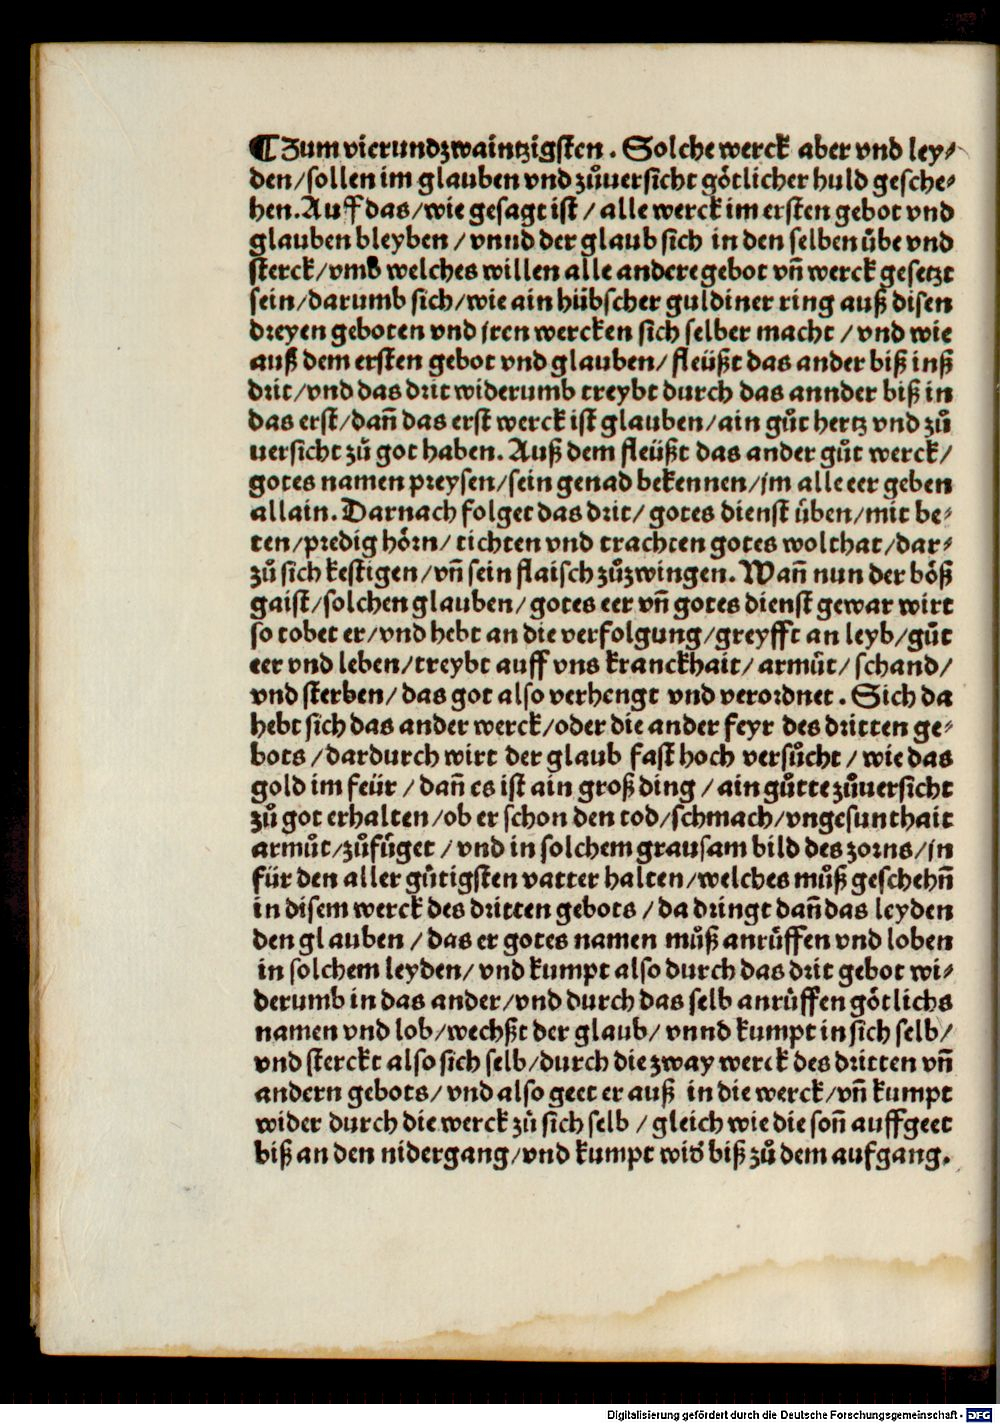 ¶ Zum vierundzwaintzigsten. Solche werck aber vnd ley⸗
den/sollen im glauben vnd zůuersicht götlicher huld gesche⸗
hen. Auff das/wie gesagt ist/alle werck im ersten gebot vnd
glauben bleyben/vnnd der glaub sich in den selben übe vnd
sterck/vmb welches willen alle andere gebot vñ werck gesetzt
sein/darumb sich/wie ain hübscher guldiner ring auß disen
dreyen geboten vnd jren wercken sich selber macht/vnd wie
auß dem ersten gebot vnd glauben/fleüßt das ander biß inß
drit/vnd das drit widerumb treybt durch das annder biß in
das erst/dañ das erst werck ist glauben/ain gůt hertz vnd zů
uersicht zů got haben. Auß dem fleüßt das ander gůt werck/
gotes namen preysen/sein genad bekennen/jm alle eer geben
allain. Darnach folget das drit/gotes dienst üben/mit be⸗
ten/predig hörn/tichten vnd trachten gotes wolthat/dar⸗
zů sich kestigen/vñ sein flaisch zůzwingen. Wañ nun der böß
gaist/solchen glauben/gotes eer vñ gotes dienst gewar wirt
so tobet er/vnd hebt an die verfolgung/greyfft an leyb/gůt
eer vnd leben/treybt auff vns kranckhait/armůt/schand/
vnd sterben/das got also verhengt vnd verordnet. Sich da
hebt sich das ander werck/oder die ander feyr des dritten ge⸗
bots/dardurch wirt der glaub fast hoch versůcht/wie das
gold im feür/dañ es ist ain groß ding/ain gůtte zůuersicht
zů got erhalten/ob er schon den tod/schmach/vngesunthait
armůt/zůfüget/vnd in solchem grausam bild des zorns/jn
für den aller gütigsten vatter halten/welches můß geschehñ
in disem werck des dritten gebots/da dringt dañ das leyden
den glauben/das er gotes namen můß anrüffen vnd loben
in solchem leyden/vnd kumpt also durch das drit gebot wi⸗
derumb in das ander/vnd durch das selb anrüffen götlichs
namen vnd lob/wechßt der glaub/vnnd kumpt in sich selb/
vnd sterckt also sich selb/durch die zway werck des dritten vñ
andern gebots/vnd also geet er auß in die werck/vñ kumpt
wider durch die werck zů sich selb/gleich wie die soñ auffgeet
biß an den nidergang/vnd kumpt wid' biß zů dem aufgang.
Digitalisierung gefördert durch die Deutsche Forschungsgemeinschaft - DFG